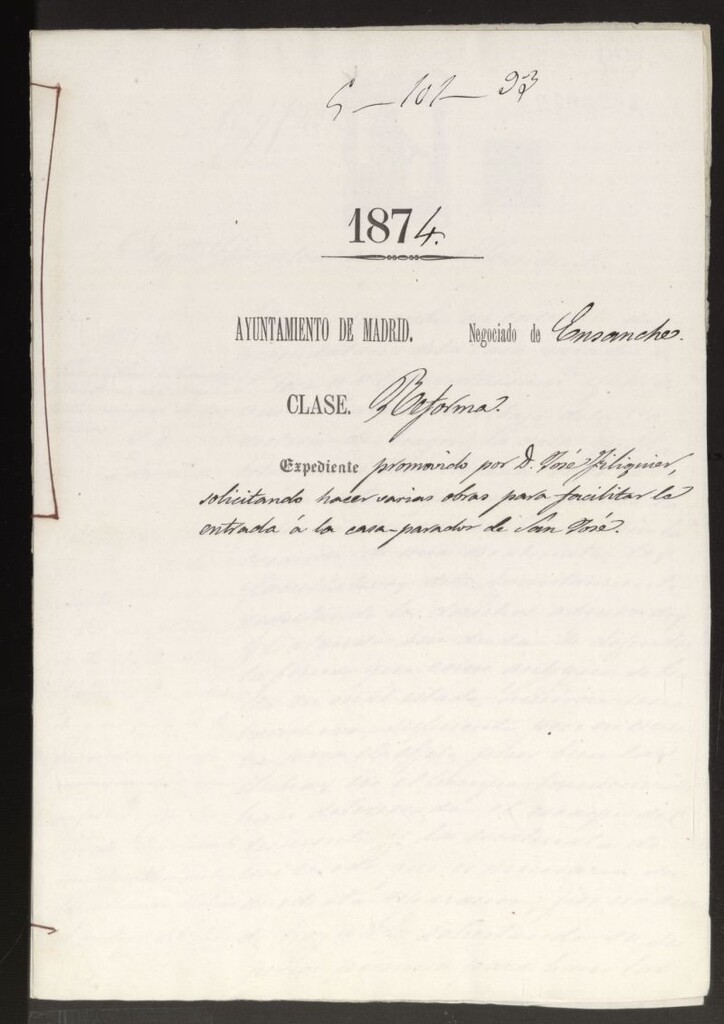 5 - 101 - 93
1874.
AYUNTAMIENTO DE MADRID. Negociado de Ensanche.
CLASE. Reforma.
Expediente promovido por D. José
solicitando hacer varias obras para facilitar la
entrada á la casa-parador de San José.